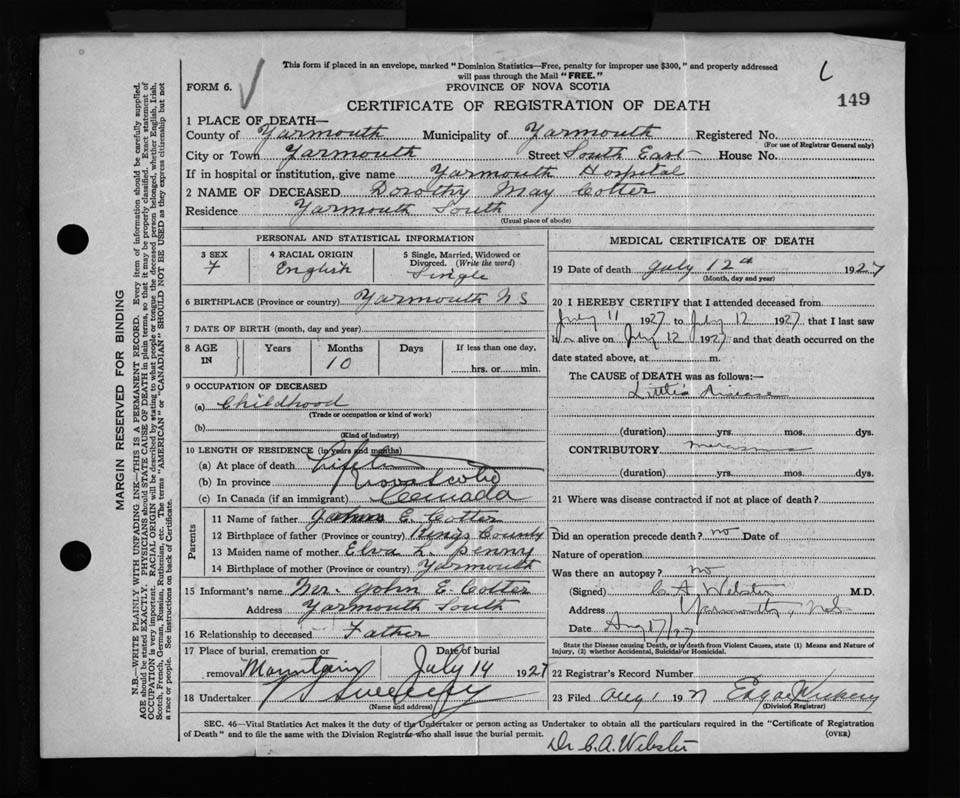 This form if placed in an envelope, marked "Dominion Statistics—Free, penalty for improper use $300," and properly addressed
will pass through the Mail "FREE."
FORM 6.
PROVINCE OF NOVA SCOTIA
L
149
CERTIFICATE OF REGISTRATION OF DEATH
1 PLACE OF DEATH—
County of Yarmouth Municipality of Yarmouth Registered No.
(For use of Registrar General only)
City or Town Yarmouth Street South East House No.
If in hospital or institution, give name Yarmouth Hospital
2 NAME OF DECEASED Dorothy May Cotter
Residence Yarmouth South
(Usual place of abode)
PERSONAL AND STATISTICAL INFORMATION
3 SEX 4 RACIAL ORIGIN 5 Single, Married, Widowed or
Divorced. (Write the word)
F English Single
6 BIRTHPLACE (Province or country) Yarmouth NS
7 DATE OF BIRTH (month, day and year)
8 AGE IN Years Months Days If less than one day,
10 hrs. or min.
9 OCCUPATION OF DECEASED
(a) Childhood
(Trade or occupation or kind of work)
(b)
(Kind of industry)
10 LENGTH OF RESIDENCE (in years and months)
(a) At place of death Lifetime
(b) In province Nova Scotia
(c) In Canada (if an immigrant) Canada
Parents
11 Name of father John E. Cotter
12 Birthplace of father (Province or country) Kings County
13 Maiden name of mother Elva L. Penny
14 Birthplace of mother (Province or country) Yarmouth
15 Informant's name Mr. John E. Cotter
Address Yarmouth South
16 Relationship to deceased Father
17 Place of burial, cremation or Date of burial
removal Mountain July 14 1927
18 Undertaker V S Sweeny
(Name and address)
MEDICAL CERTIFICATE OF DEATH
19 Date of death July 12th 1927
(Month, day and year)
20 I HEREBY CERTIFY that I attended deceased from
July 11 1927 to July 12 1927. that I last saw
h er alive on July 12 1927 and that death occurred on the
date stated above, at m.
The CAUSE of DEATH was as follows:—
Little's disease
(duration) yrs. mos. dys.
CONTRIBUTORY marasmus
(duration) yrs. mos. dys.
21 Where was disease contracted if not at place of death?
Did an operation precede death? no Date of
Nature of operation
Was there an autopsy? no
(Signed) C A Webster M.D.
Address Yarmouth, N.S.
Date Aug 17/27
State the Disease causing Death, or in death from Violent Causes, state (1) Means and Nature of
Injury, (2) whether Accidental, Suicidal or Homicidal.
22 Registrar's Record Number
23 Filed Aug 1 1927 Edgar Vickery
(Division Registrar)
SEC. 46—Vital Statistics Act makes it the duty of the Undertaker or person acting as Undertaker to obtain all the particulars required in the "Certificate of Registration
of Death" and to file the same with the Division Registrar who shall issue the burial permit. (OVER)
Dr C. A. Webster
MARGIN RESERVED FOR BINDING
N.B.—WRITE PLAINLY WITH UNFADING INK—THIS IS A PERMANENT RECORD. Every item of information should be carefully supplied.
AGE should be stated EXACTLY. PHYSICIANS should STATE CAUSE OF DEATH in plain terms, so that it may be properly classified. Exact statement of
OCCUPATION is very important. RACIAL ORIGIN will be described by stating to what people or tongue the deceased person belonged, whether English, Irish,
Scotch, French, German, Russian, Ruthenian, etc. The terms "AMERICAN" or "CANADIAN" SHOULD NOT BE USED as they express citizenship but not
a race or people. See instructions on back of Certificate.